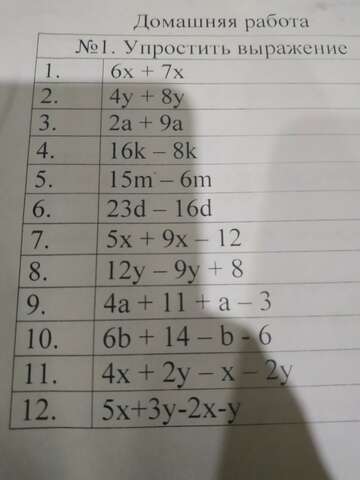 Домашняя работа
№1. Упростить выражение
1. 6x + 7x
2. 4y + 8y
3. 2a + 9a
4. 16k – 8k
5. 15m – 6m
6. 23d – 16d
7. 5x + 9x – 12
8. 12y – 9y + 8
9. 4a + 11 + a – 3
10. 6b + 14 – b - 6
11. 4x + 2y – x – 2y
12. 5x+3y-2x-y